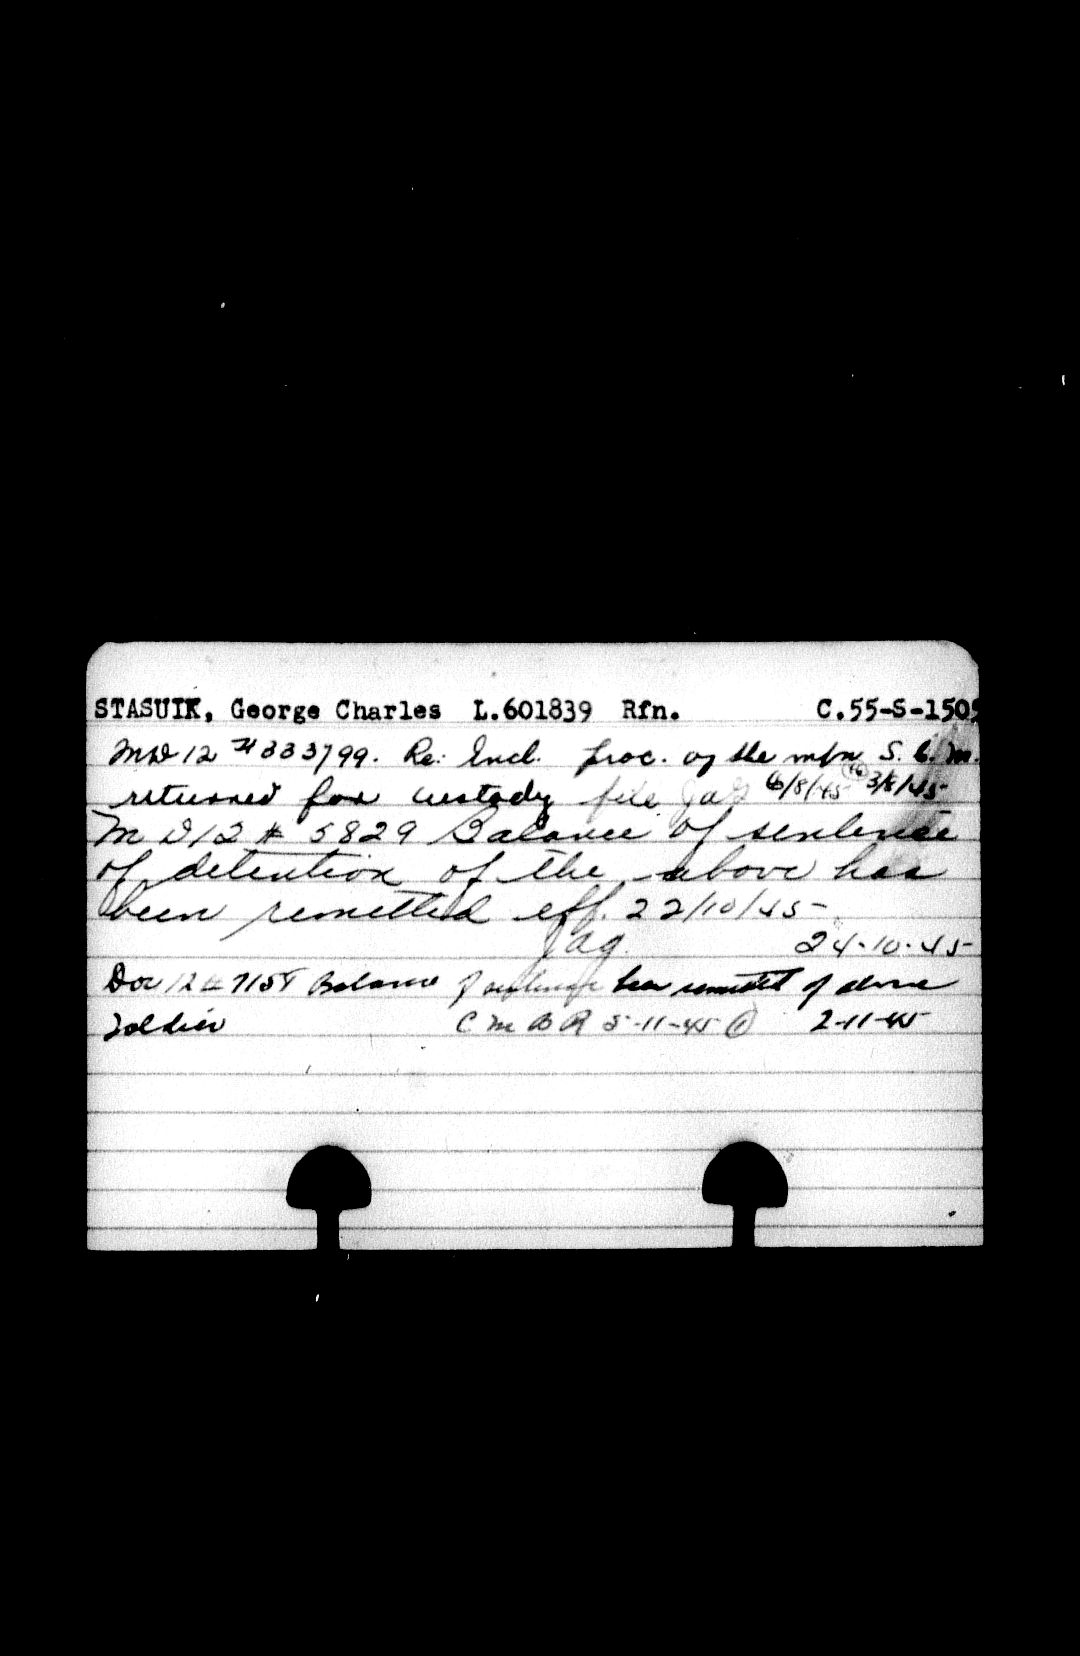 STASUIK, George Charles L.601839 Rfn. C.55-S-1505
MD 12 # 333799. Re: Encl. proc. of the m/n S. C. M.
returned for custody file Jag 6/8/45 3/8/45
M D 12 # 5829 Balance of sentence
of detention of the above has
been remitted eff. 22/10/45
Jag. 24-10-45
Doc 12 # 7158 Balance of sentence been remitted of above
soldier C M B R 5-11-45 2-11-45